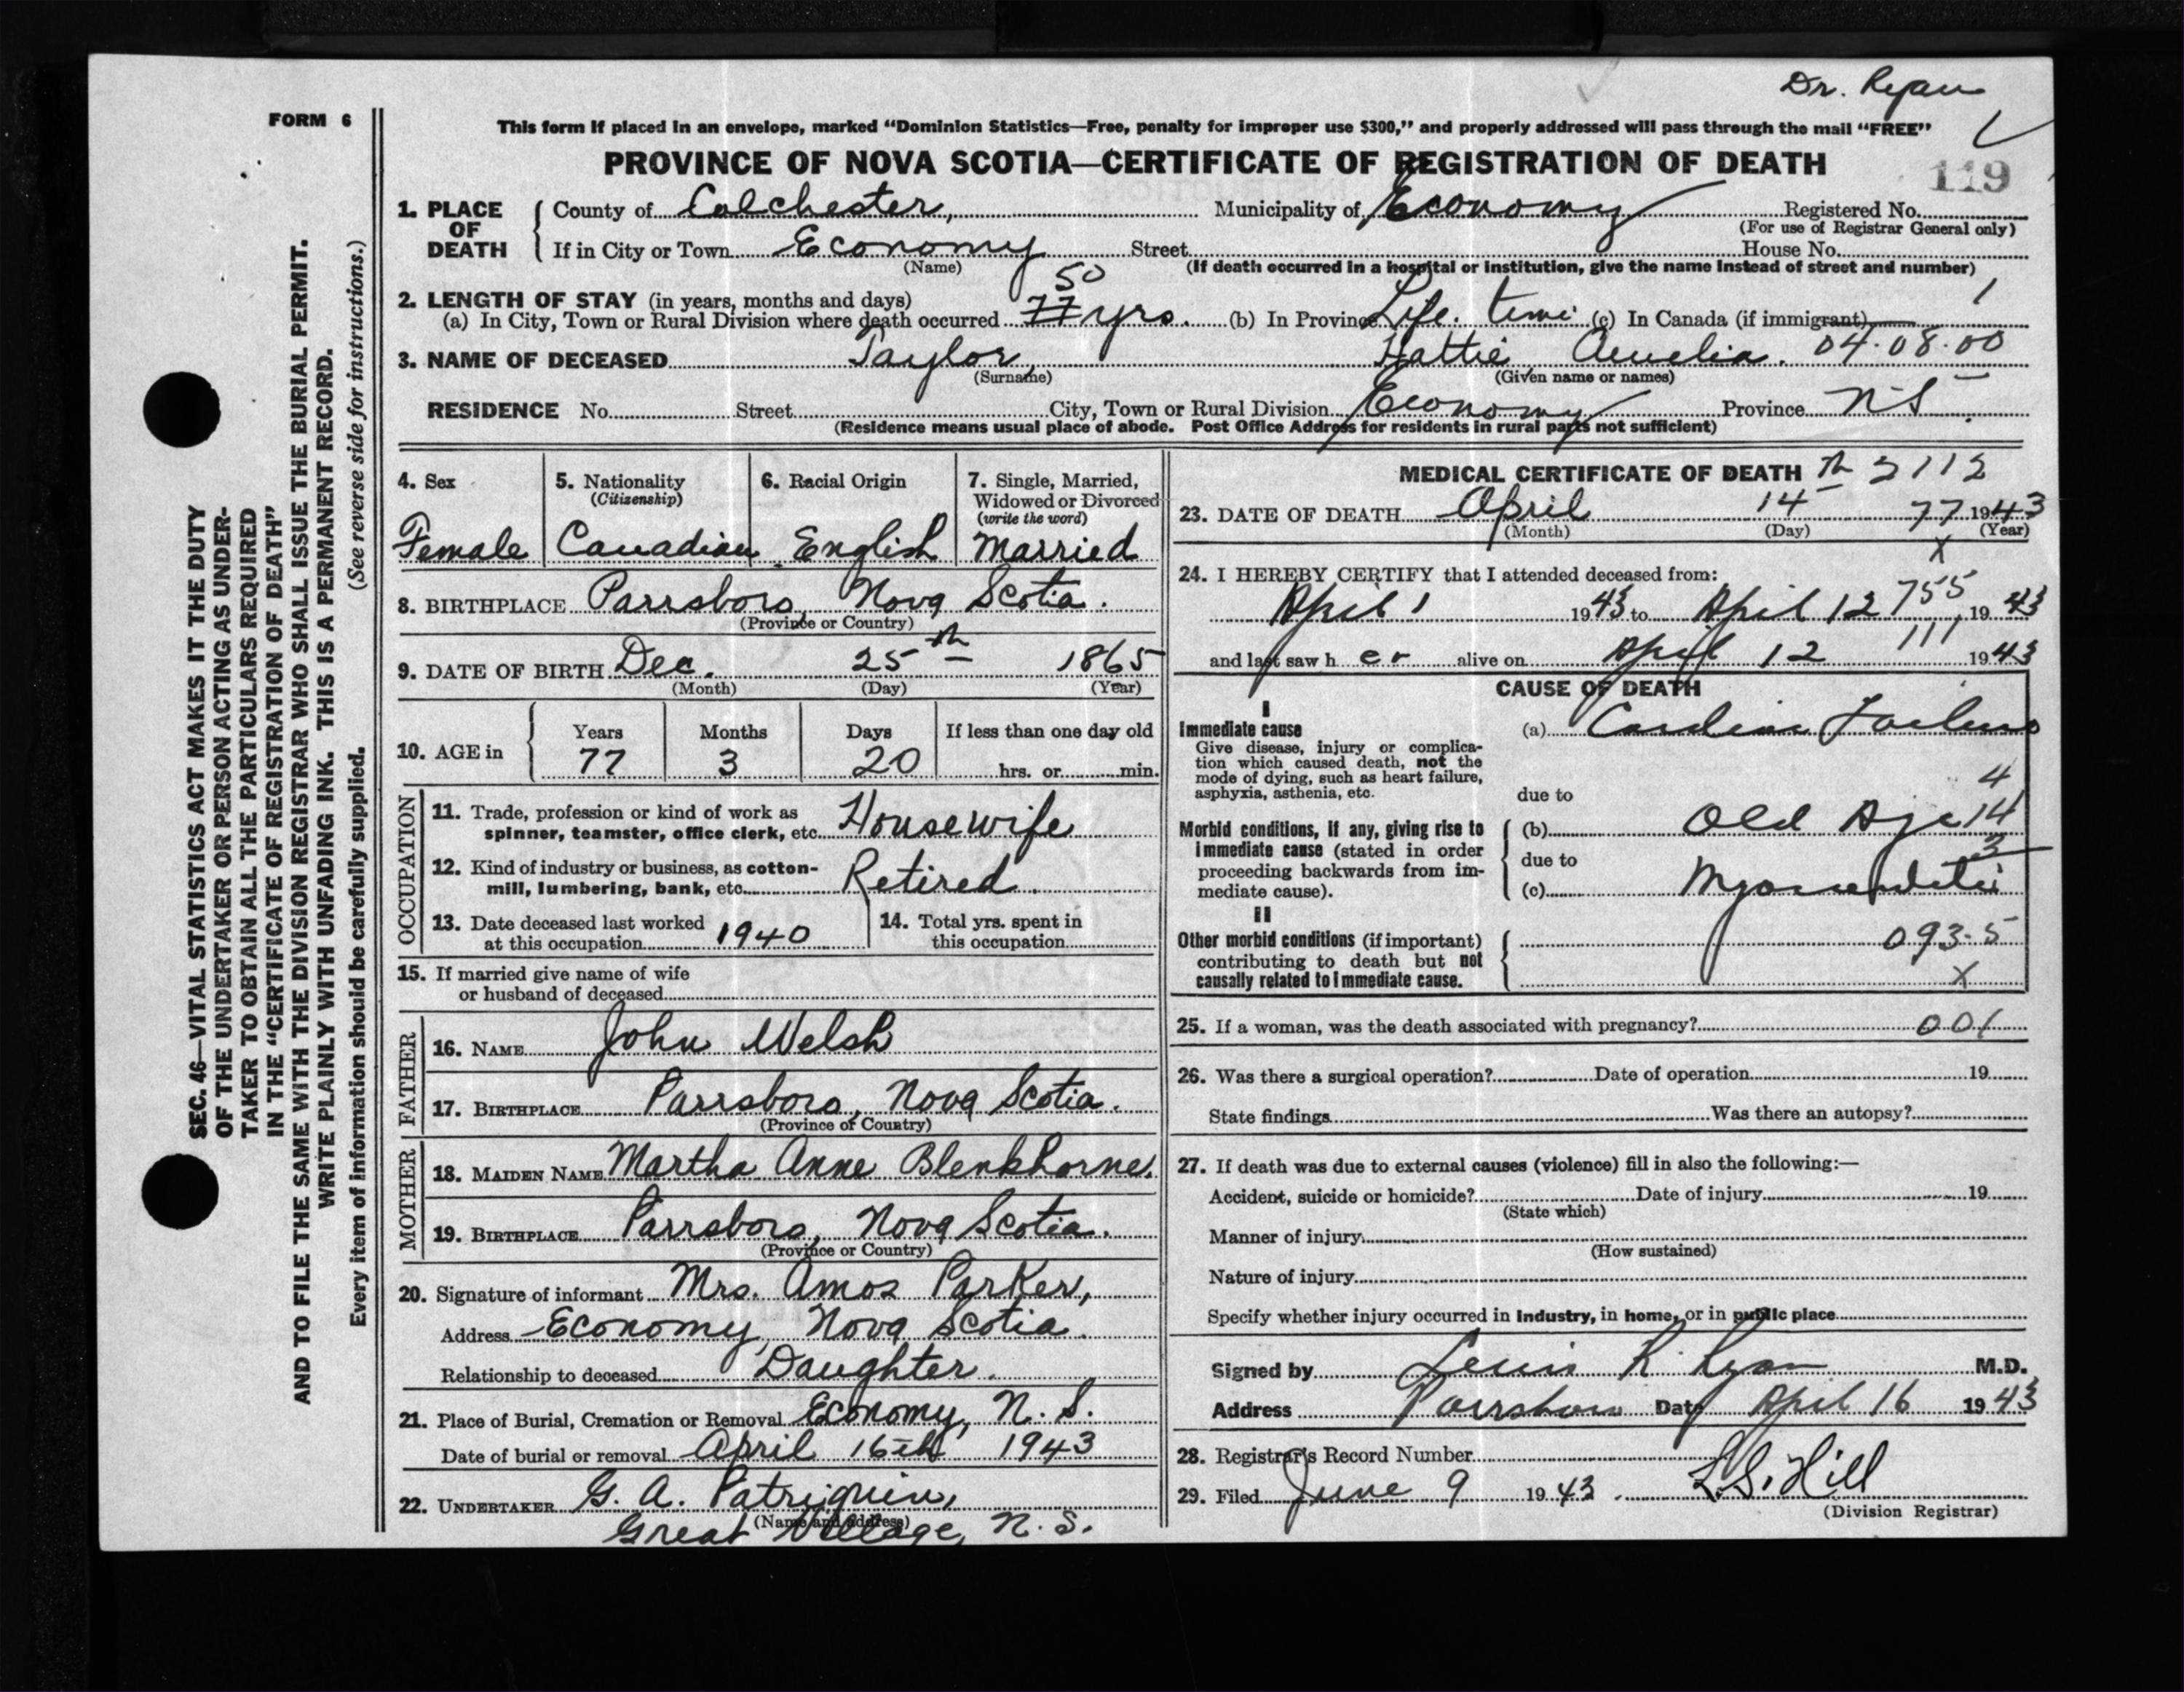 Dr. Ryan
FORM 6
This form if placed in an envelope, marked "Dominion Statistics—Free, penalty for improper use $300," and properly addressed will pass through the mail "FREE"
PROVINCE OF NOVA SCOTIA—CERTIFICATE OF REGISTRATION OF DEATH
119
1. PLACE OF DEATH County of Colchester, Municipality of Economy Registered No.
(For use of Registrar General only)
If in City or Town Economy Street House No.
(Name) (If death occurred in a hospital or institution, give the name instead of street and number)
50
2. LENGTH OF STAY (in years, months and days) 1
(a) In City, Town or Rural Division where death occurred 77 yrs. (b) In Province Life. time (c) In Canada (if immigrant)
3. NAME OF DECEASED Taylor, Hattie Amelia. 04.08.00
(Surname) (Given name or names)
RESIDENCE No. Street City, Town or Rural Division Economy Province N.S.
(Residence means usual place of abode. Post Office Address for residents in rural parts not sufficient)
4. Sex 5. Nationality 6. Racial Origin 7. Single, Married,
(Citizenship) Widowed or Divorced
(write the word)
Female Canadian English Married
8. BIRTHPLACE Parrsboro, Nova Scotia.
(Province or Country)
9. DATE OF BIRTH Dec. 25th 1865
(Month) (Day) (Year)
10. AGE in Years Months Days If less than one day old
77 3 20 hrs. or min.
OCCUPATION
11. Trade, profession or kind of work as
spinner, teamster, office clerk, etc. Housewife
12. Kind of industry or business, as cotton-
mill, lumbering, bank, etc. Retired.
13. Date deceased last worked 14. Total yrs. spent in
at this occupation 1940 this occupation
15. If married give name of wife
or husband of deceased
FATHER
16. NAME John Welsh
17. BIRTHPLACE Parrsboro, Nova Scotia.
(Province or Country)
MOTHER
18. MAIDEN NAME Martha Anne Blenkhorne.
19. BIRTHPLACE Parrsboro, Nova Scotia.
(Province or Country)
20. Signature of informant Mrs. Amos Parker,
Address Economy, Nova Scotia.
Relationship to deceased Daughter.
21. Place of Burial, Cremation or Removal Economy, N. S.
Date of burial or removal April 16th 1943
22. UNDERTAKER G. A. Patriquin,
(Name and address)
Great Village, N. S.
MEDICAL CERTIFICATE OF DEATH
23. DATE OF DEATH April 14 77 1943
(Month) (Day) (Year)
X
24. I HEREBY CERTIFY that I attended deceased from:
755
April 1 1943 to April 12, 1943
111
and last saw her alive on April 12 1943
CAUSE OF DEATH
I
Immediate cause (a) Cardiac Failure
Give disease, injury or complica-
tion which caused death, not the
mode of dying, such as heart failure,
asphyxia, asthenia, etc. due to 4
Morbid conditions, if any, giving rise to (b) Old Age 14
immediate cause (stated in order due to 3
proceeding backwards from im-
mediate cause). (c) Myocarditis
II
Other morbid conditions (if important) 093.5
contributing to death but not
causally related to immediate cause. X
25. If a woman, was the death associated with pregnancy? 001
26. Was there a surgical operation? Date of operation 19
State findings Was there an autopsy?
27. If death was due to external causes (violence) fill in also the following:—
Accident, suicide or homicide? Date of injury 19
(State which)
Manner of injury
(How sustained)
Nature of injury
Specify whether injury occurred in industry, in home, or in public place
Signed by Lewis R. Ryan M.D.
Address Parrsboro Date April 16 1943
28. Registrar's Record Number
29. Filed June 9 1943. L.S. Hill
(Division Registrar)
SEC. 46—VITAL STATISTICS ACT MAKES IT THE DUTY
OF THE UNDERTAKER OR PERSON ACTING AS UNDER-
TAKER TO OBTAIN ALL THE PARTICULARS REQUIRED
IN THE "CERTIFICATE OF REGISTRATION OF DEATH"
AND TO FILE THE SAME WITH THE DIVISION REGISTRAR WHO SHALL ISSUE THE BURIAL PERMIT.
WRITE PLAINLY WITH UNFADING INK. THIS IS A PERMANENT RECORD.
Every item of information should be carefully supplied. (See reverse side for instructions.)